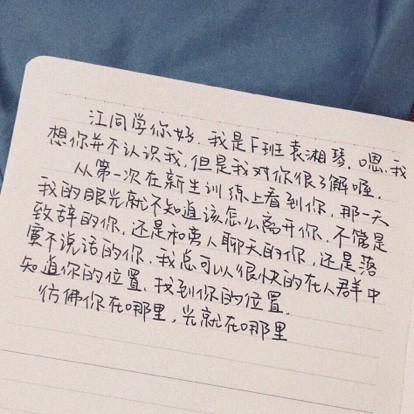 江同学你好,我是F班袁湘琴,嗯,我
想你并不认识我,但是我对你很了解喔,
从第一次在新生训练上看到你,那一天
我的眼光就不知道该怎么离开你,不管是
致辞的你,还是和旁人聊天的你,还是落
寞不说话的你,我总可以很快的在人群中
知道你的位置,找到你的位置,
彷佛你在哪里,光就在哪里